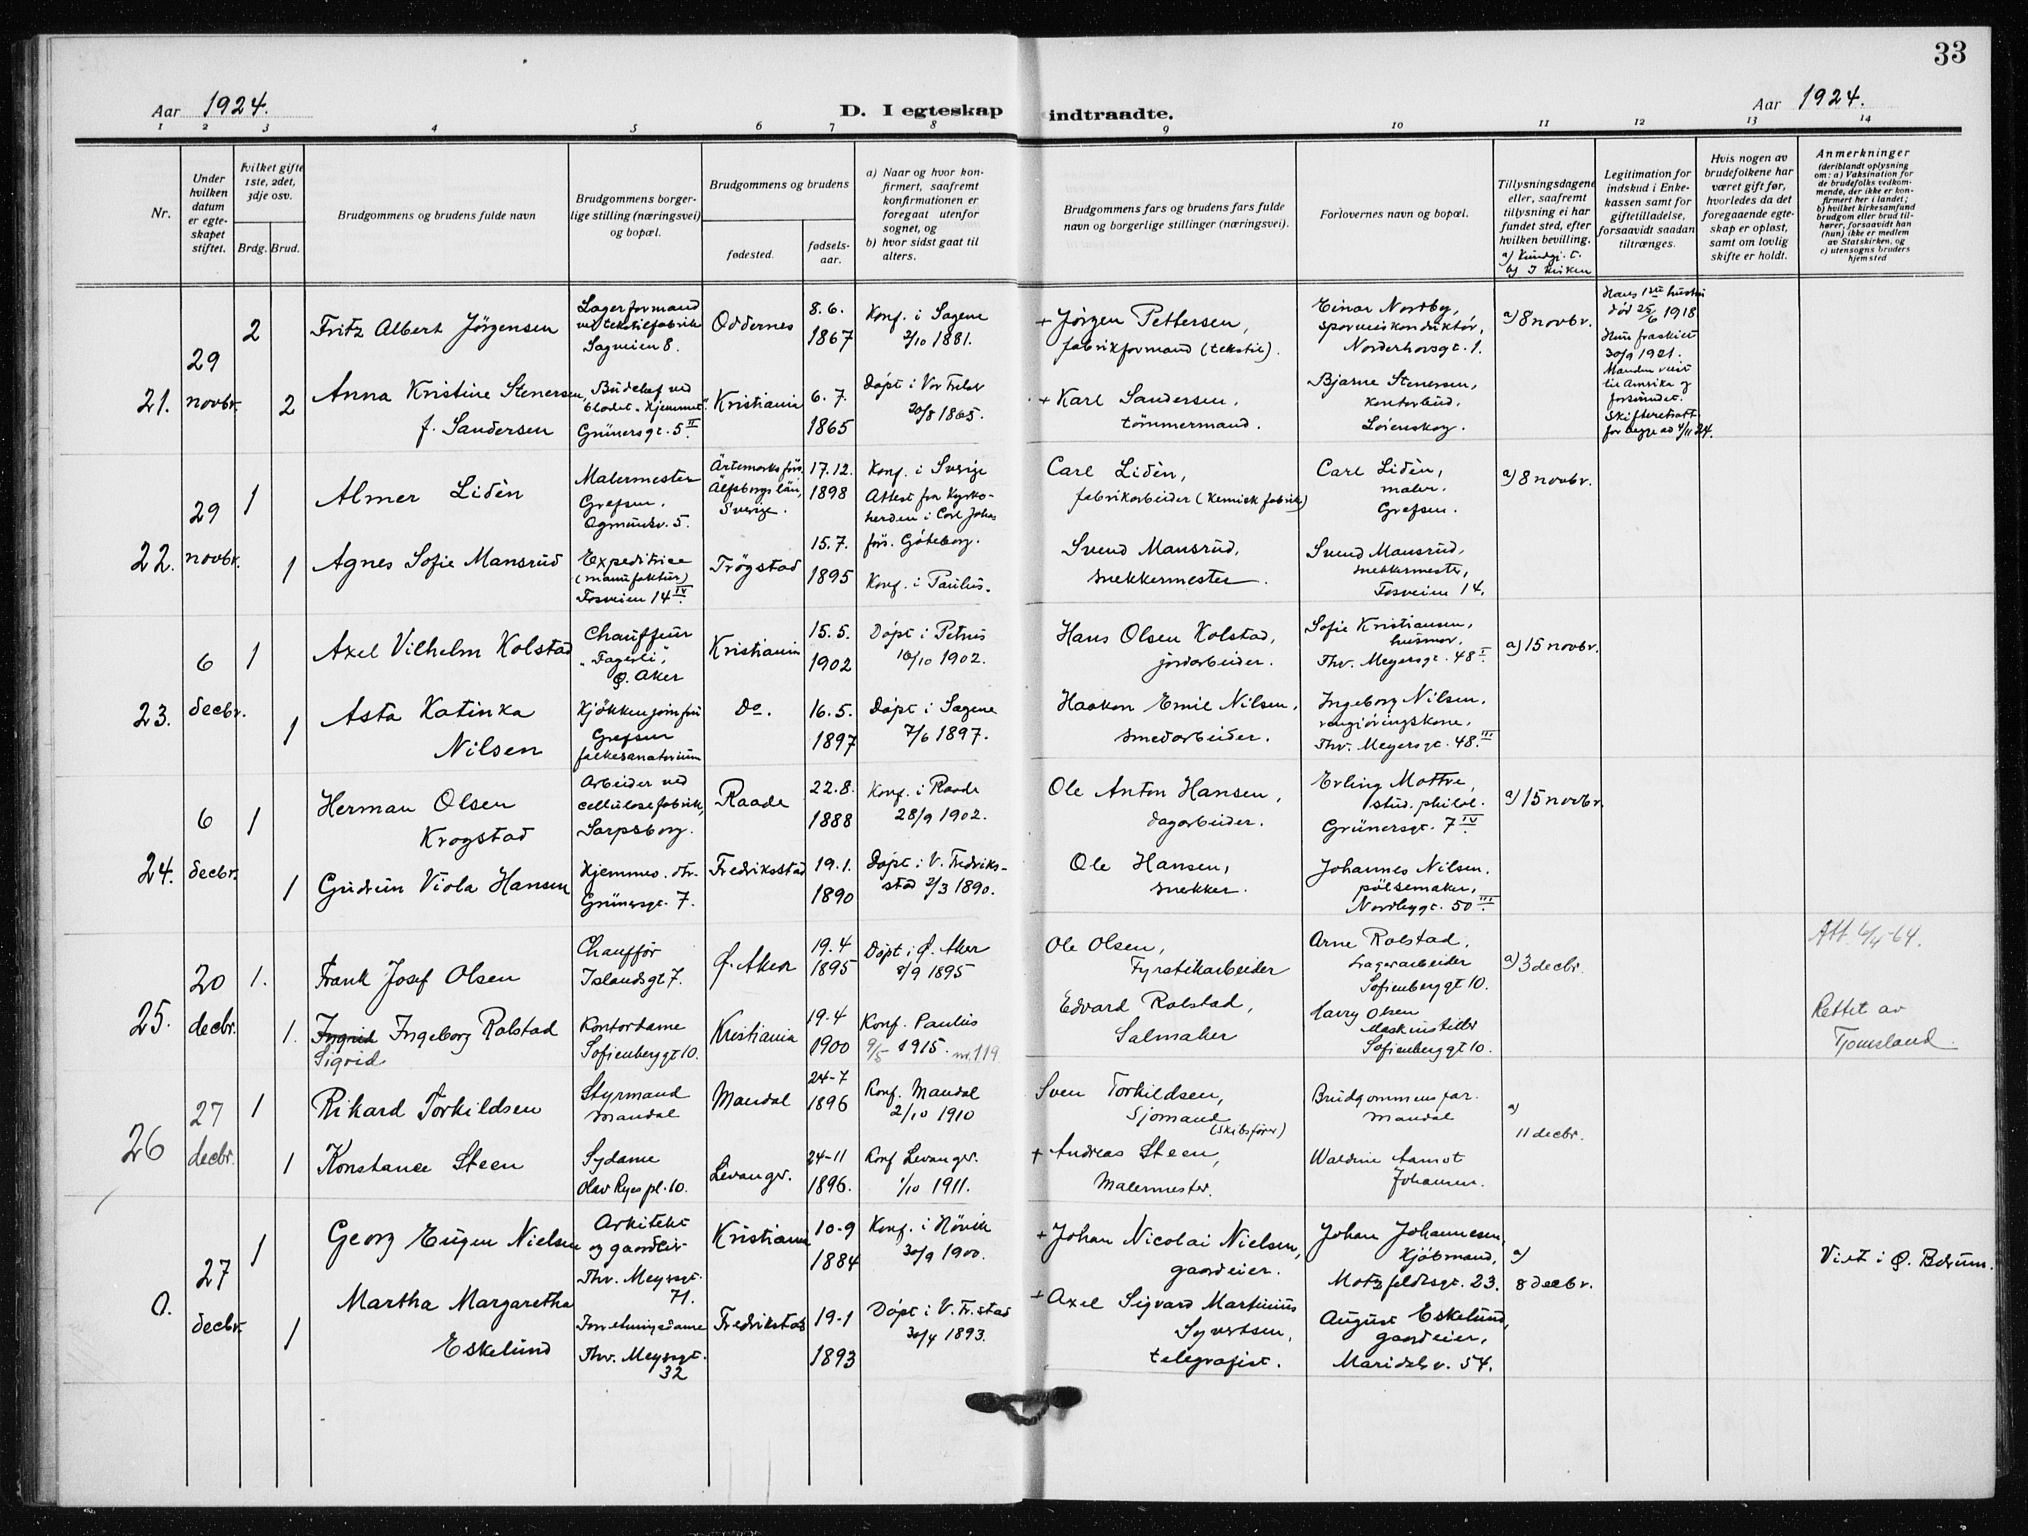 33
Aar 1924.
D. I egteskap indtraadte.
Aar 1924.
1 2 3 4 5 6 7 8 9 10 11 12 13 14
Nr.
Under hvilken datum er egteskapet stiftet.
Hvilket gifte 1ste, 2det, 3dje osv.
Brdg. Brud.
Brudgommens og brudens fulde navn
Brudgommens borgerlige stilling (næringsvei) og bopæl.
Brudgommens og brudens
fødested.
fødselsaar.
a) Naar og hvor konfirmert, saafremt konfirmationen er foregaat utenfor sognet, og
b) hvor sidst gaat til alters.
Brudgommens fars og brudens fars fulde navn og borgerlige stillinger (næringsvei).
Forlovernes navn og bopæl.
Tillysningsdagene eller, saafremt tillysning ei har fundet sted, efter hvilken bevilling.
a) Kundgj. t.
b) I kirken
Legitimation for indskud i Enkekassen samt for giftetilladelse, forsaavidt saadan tiltrænges.
Hvis nogen av brudefolkene har været gift før, hvorledes da det foregaaende egteskap er opløst, samt om lovlig skifte er holdt.
Anmerkninger
(deriblandt oplysning om: a) Vaksination for de brudefolks vedkommende, der ikke er konfirmert her i landet;
b) hvilket kirkesamfund brudgom eller brud tilhører, forsaavidt han (hun) ikke er medlem av Statskirken, og
c) utensogns bruders hjemsted
21.
29 novbr.
2
Fritz Albert Jörgensen
Lagerformand
ved tekstilfabrik
Sagveien 8.
Oddernes
8.6.
1867
Konf. i Sagene
2/10 1881.
+ Jörgen Pettersen,
fabrikformand (tekstil).
Einar Nordby,
sporveiskonduktör,
Norderhovsgt. 1.
a) 8 novbr.
Hans 1ste hustru
död 25/6 1918
Hun fraskilt
30/9 1921.
Manden reist
til Amrika og
forsvundet.
Skifteratt.
for begge ad 4/11 24.
2
Anna Kristine Stenersen,
f. Sandersen
Budchef ved
bladet "Hjemmet".
Grünersgt. 5 II.
Kristiania
6.7.
1865
Döpt i Vor Frelser
20/8 1865.
+ Karl Sandersen,
tömmermand.
Bjarne Stenersen,
kontorbud.
Löienskog.
22.
29 novbr.
1
Almer Lidèn
Malermester
Grefsen.
Ogmundsv. 5.
Ärtemarks förs.
Älfsborgs län,
Sverige.
17.12.
1898
Konf. i Sverige
Attest fra Kyrko-
herden i Carl Johas
förs. Göteborg.
Carl Lidèn,
fabrikarbeider (kemisk fabrik)
Carl Lidèn,
maler.
Grefsen.
a) 8 novbr.
1
Agnes Sofie Mansrud
Expeditrice
(manufaktur)
Fosveien 14 IV.
Trögstad
15.7.
1895
Konf. i Paulus.
Svend Mansrud,
snekkermester.
Svend Mansrud,
snekkermester,
Fosveien 14.
23.
6 decbr.
1
Axel Vilhelm Kolstad
Chauffeur
"Fagerli",
Ö. Aker
Kristiania
15.5.
1902
Döpt i Petrus
10/10 1902.
Hans Olsen Kolstad,
jordarbeider.
Sofie Kristiansen,
husmor,
Thv. Meyersgt. 48 I.
a) 15 novbr.
1
Asta Katinka
Nilsen
Kjökkenjomfru
Grefsen
folkesanatorium
Do.
16.5.
1897
Döpt i Sagene
7/6 1897.
Haakon Emil Nilsen,
smedarbeider.
Ingeborg Nilsen,
rengjöringskone,
Thv. Meyersgt. 48. III
24.
6 decbr.
1
Herman Olsen
Krogstad
Arbeider ved
cellulosefabrik,
Sarpsborg.
Raade
22.8.
1888
Konf. i Raade
28/9 1902.
Ole Anton Hansen,
dagarbeider.
Erling Mottre,
stud. philol.
Grünersgt. 7 IV.
a) 15 novbr.
1
Gudrun Viola Hansen
Hjemmev. dtr.
Grünersgt. 7.
Fredriksstad
19.1.
1890
Döpt i V. Fredriks-
stad 2/3 1890.
Ole Hansen,
snekker.
Johannes Nilsen,
pölsemaker,
Nordbygt. 50 III.
25.
20 decbr.
1.
Frank Josef Olsen
Chauffør
Islandsgt 7.
Ø. Aker
19.4
1895
Døpt i Ø. Aker
8/9 1895
Ole Olsen,
Fyrstikarbeider
Arne Rolstad,
Lagerarbeider
Sofienberggt 10.
a) 3 decbr.
Att. 6/4-64.
1.
Ingrid Ingeborg Rolstad
Sigrid
Kontordame
Sofienberggt 10.
Kristiania
19.4
1900
Konf. Paulus
9/5 1915. nr. 119
Edvard Rolstad,
Salmaker
Harry Olsen
Maskinstiller
Sofienberggt 10.
Rettet av
Tjomsland
26
27 decbr.
1
Rikard Torkildsen
Styrmand
Mandal
Mandal
24-7
1896
Konf. Mandal
2/10 1910
Sven Torkildsen,
Sjømand
(Skibsfører)
Brudgommens far.
Mandal
a)
11 decbr.
1
Konstance Steen
Sydame
Olav Ryes pl. 10.
Levanger.
24-11
1896.
Konf Levanger.
1/10 1911.
+ Andreas Steen,
Malermester.
Waldine Aamot
Johansen.
0.
27 decbr.
1
Georg Eugen Nielsen
Arkitekt
og gaardeier
Thv. Meyersgt.
71.
Kristiania
10-9
1884
Konf. i Hövik
30/9 1900.
+ Johan Nicolai Nielsen,
gaardeier.
Johan Johannesen,
Kjöbmand,
Motzfeldtsgt. 23.
a)
8 decbr.
Viet i Ö. Bærum.
1
Martha Margaretha
Eskelund
Forretningsdame
Thv. Meyersgt.
32
Fredrikstad
19-1
1893
Döpt i V. Fr.stad
30/4 1893.
+ Axel Sigvard Martinius
Syvertsen,
telegrafist.
August Eskelund,
gaardeier,
Maridalsv. 54.